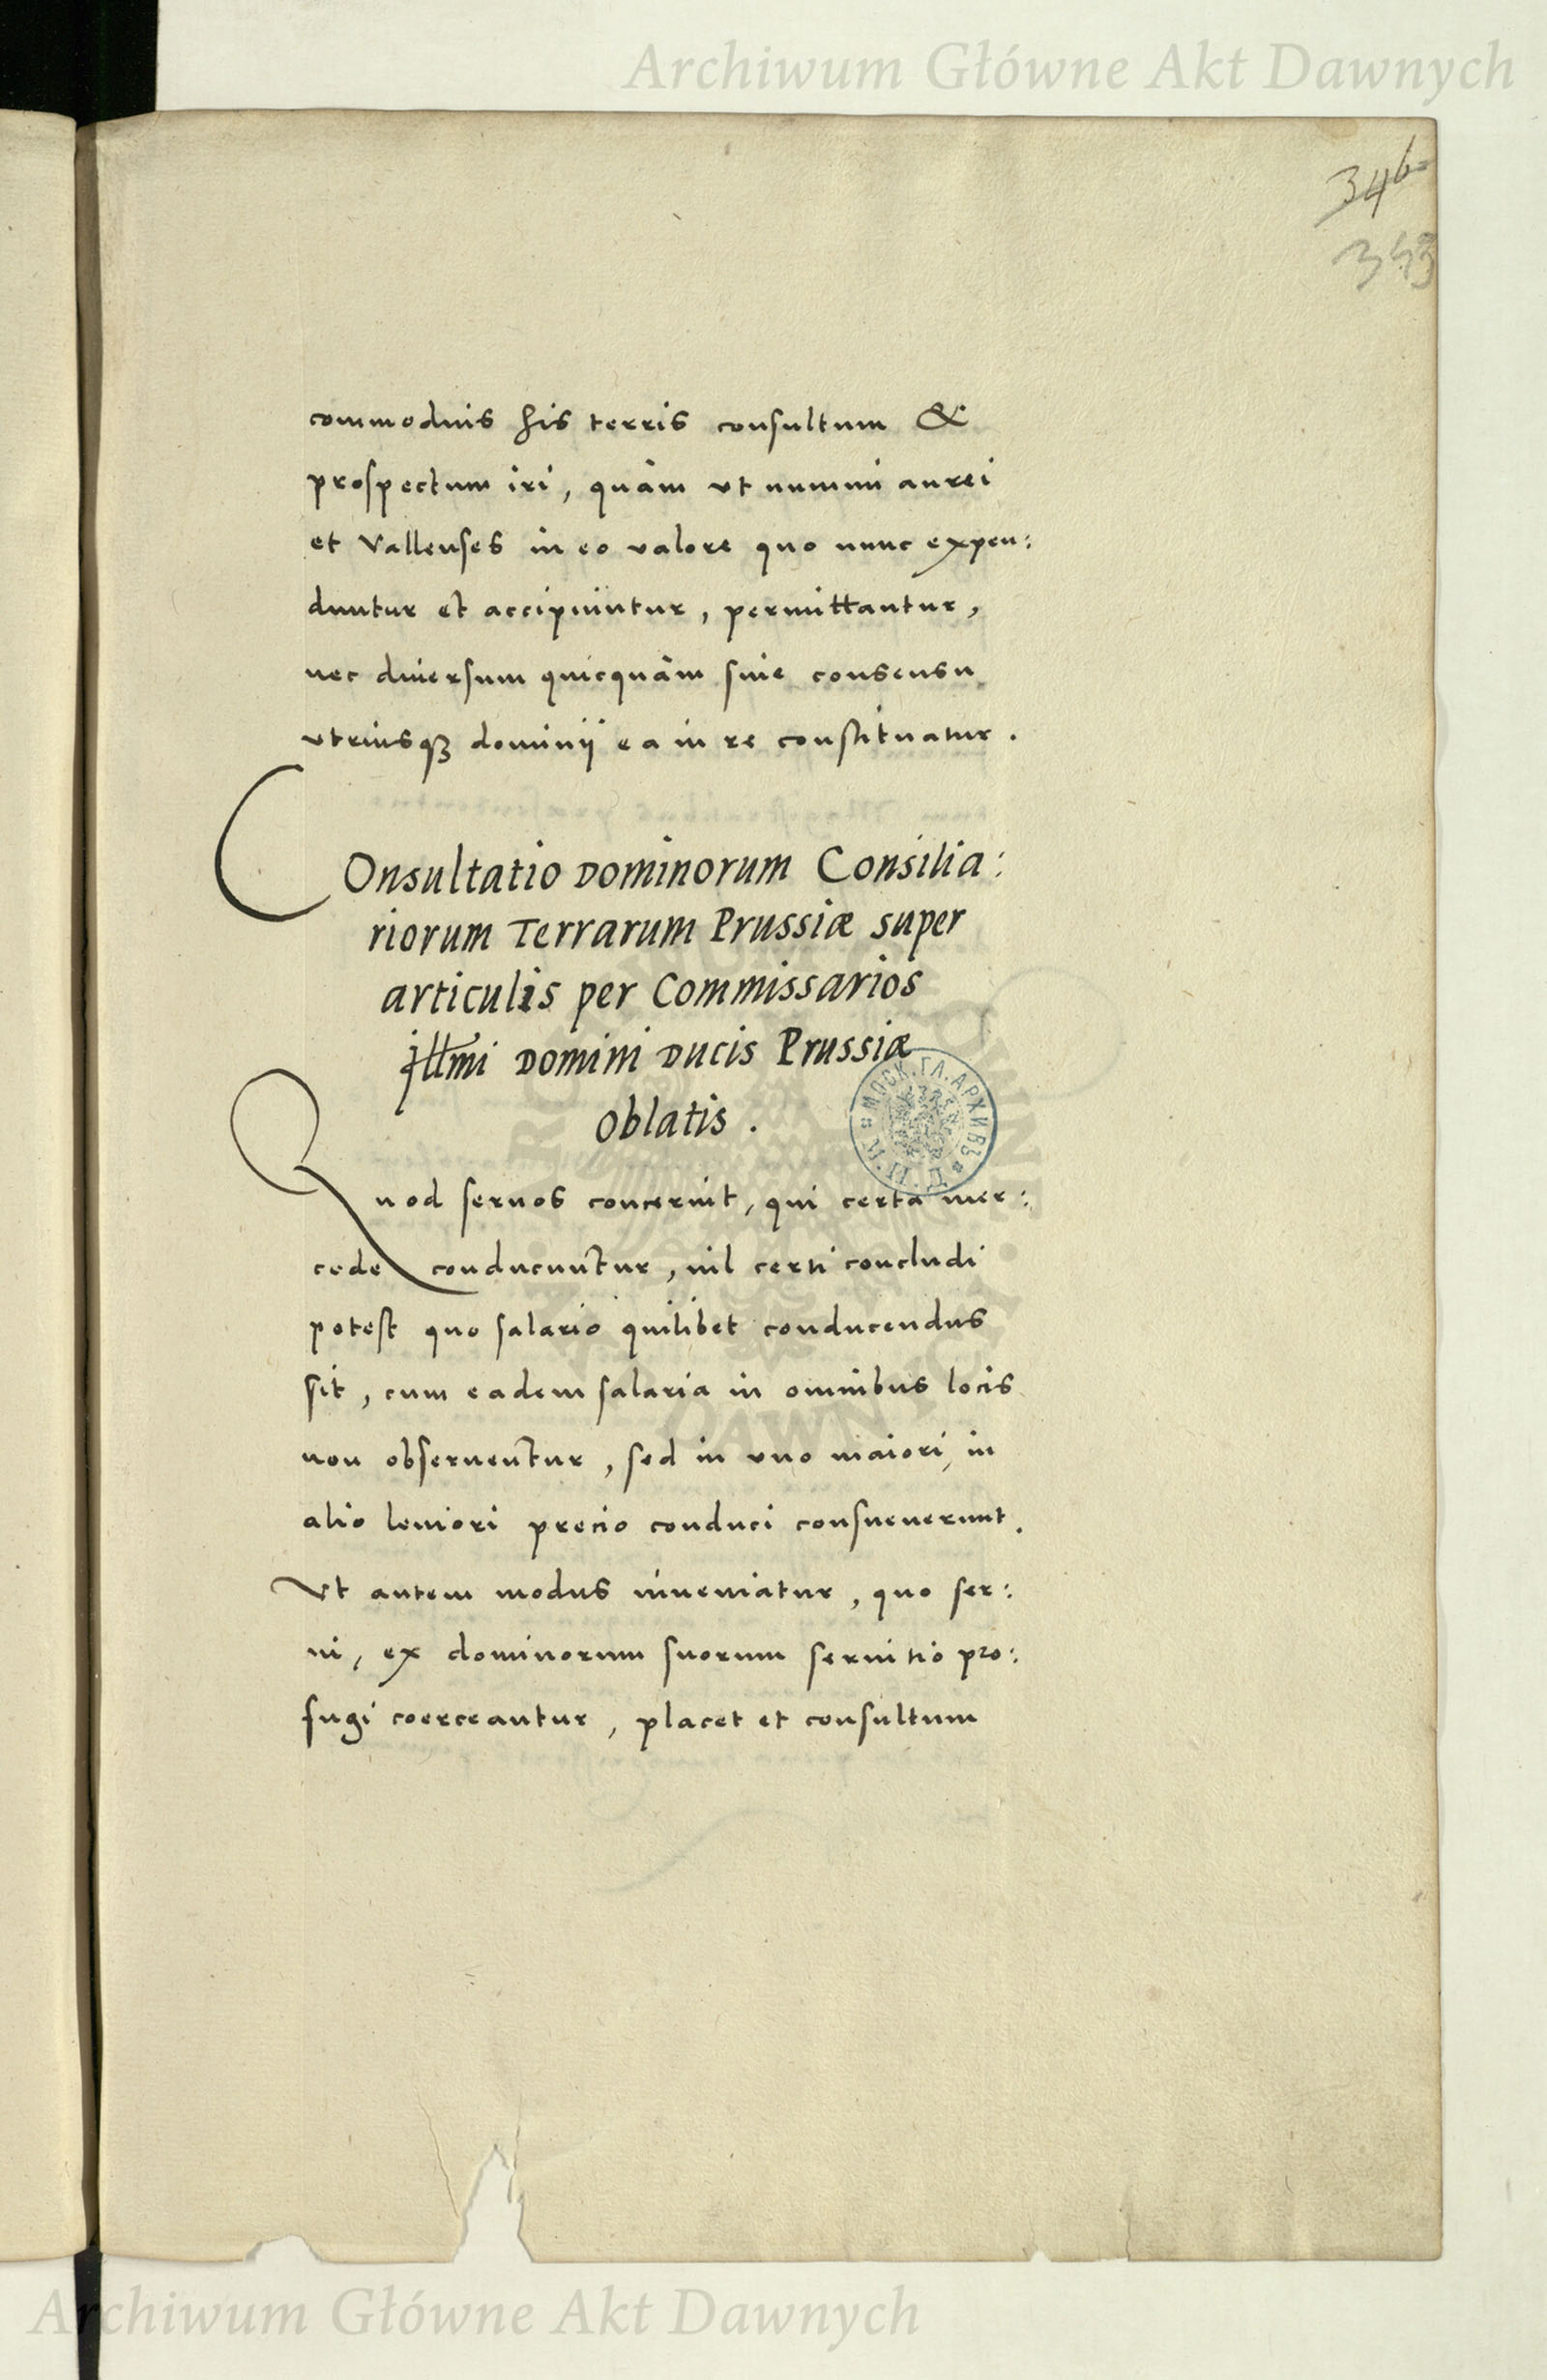 Archiwum Główne Akt Dawnych
346
353
commodius his terris consultum &
prospectum iri, quàm vt nummi aurei
et Vallenses in eo valore quo nunc expen:
duntur et accipiuntur, permittantur,
nec diuersum quicquàm sine consensu
vtriusqꝫ dominij ea in re constituatur.
COnsultatio Dominorum Consilia:
riorum Terrarum Prussiæ super
articulis per Commissarios
jllmi Domini Ducis Prussiæ
oblatis.
МОСК. ГЛ. АРХИВЪ
Quod seruos concernit, qui certa mer:
cede conducuntur, nil certi concludi
potest quo salario quilibet conducendus
sit, cum eadem salaria in omnibus locis
non obseruentur, sed in vno maiori, in
alio leuiori precio conduci consueuerunt.
Vt autem modus inueniatur, quo ser:
ui, ex dominorum suorum seruitio pro:
fugi coerceantur, placet et consultum
Archiwum Główne Akt Dawnych